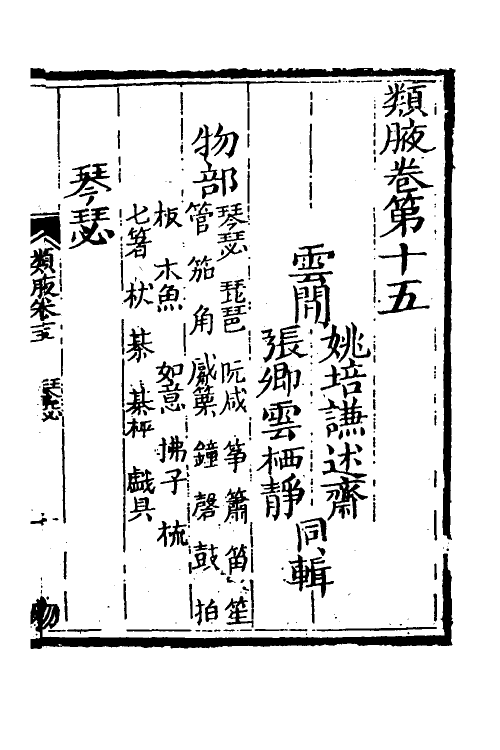 類腋卷第十五
雲間
姚培謙述齋
張卿雲栖靜
同輯
物部
琴瑟 琵琶 阮咸 箏 簫 笛 笙
管 笳 角 觱篥 鐘 磬 鼓 拍
板 木魚 如意 拂子 梳
七箸 杖 棊 棊枰 戲具
琴瑟
類腋 琴瑟 十 物